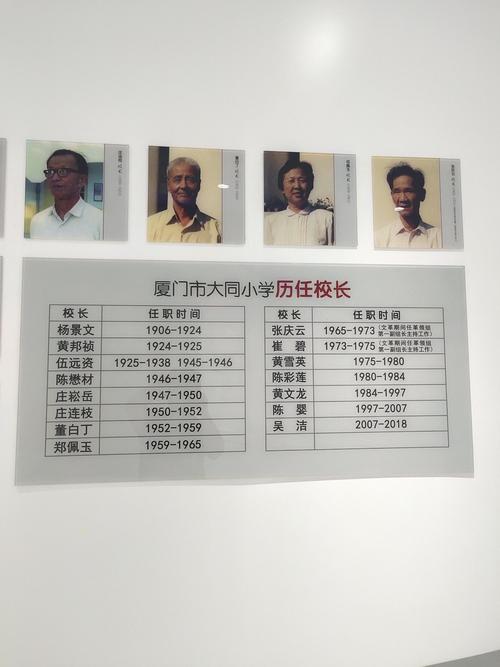 厦门市大同小学历任校长
校长 任职时间
杨景文 1906-1924
黄邦祯 1924-1925
伍远资 1925-1938 1945-1946
陈懋材 1946-1947
庄崧岳 1947-1950
庄连枝 1950-1952
董白丁 1952-1959
郑佩玉 1959-1965
校长 任职时间
张庆云 1965-1973 (文革期间任革领组
第一副组长主持工作)
崔碧 1973-1975 (文革期间任革领组
第一副组长主持工作)
黄雪英 1975-1980
陈彩莲 1980-1984
黄文龙 1984-1997
陈婴 1997-2007
吴洁 2007-2018